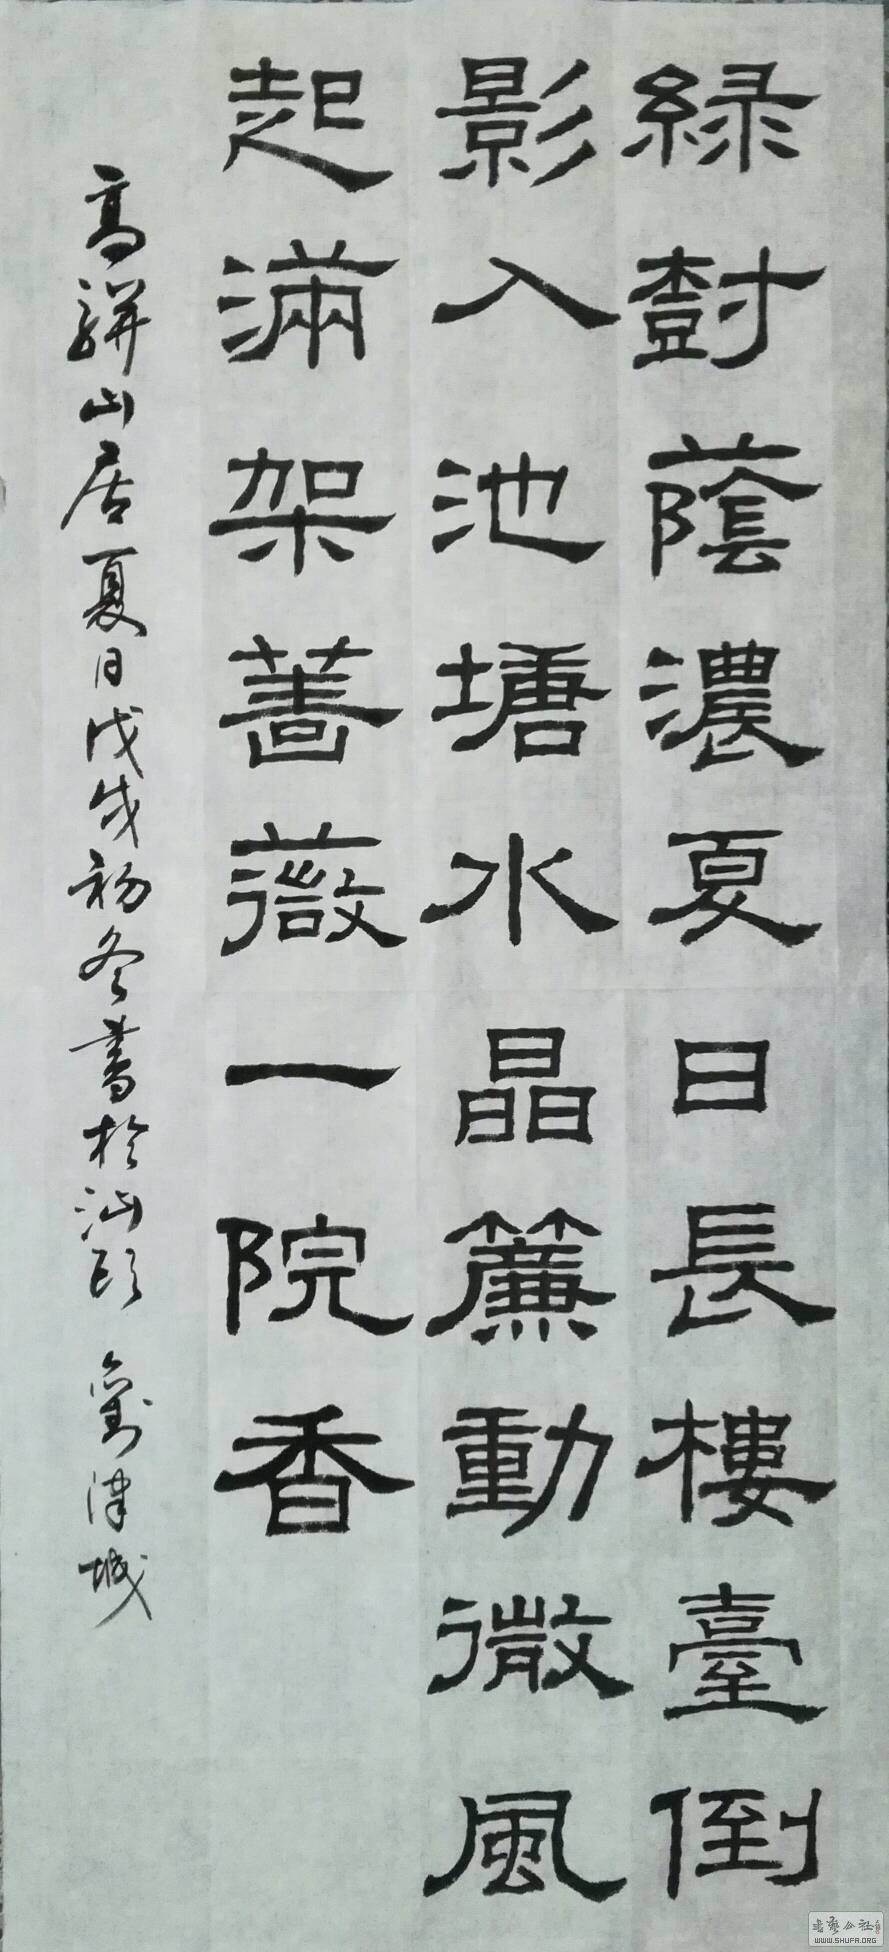 緑樹蔭濃夏日長樓臺倒
影入池塘水晶簾動微風
起滿架薔薇一院香
高駢山居夏日戊戌初冬書於汕頭 劉津城
书艺公社
WWW.SHUFA.ORG